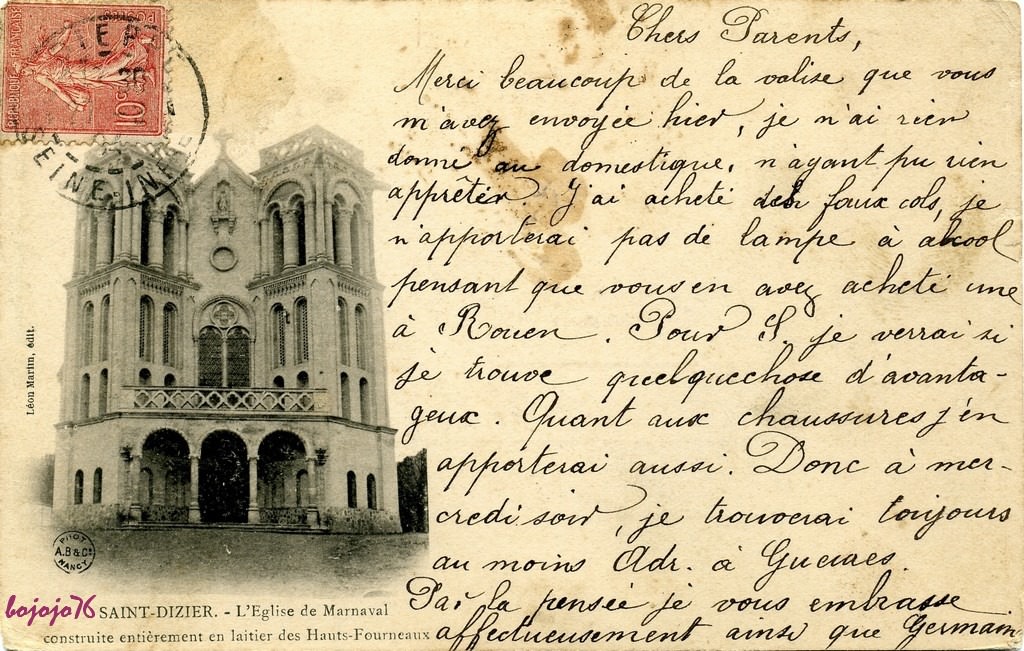 Chers Parents,
Merci beaucoup de la valise que vous
m'avez envoyée hier, je n'ai rien
donné au domestique, n'ayant pu rien
apprêter. J'ai acheté des faux cols, je
n'apporterai pas de lampe à alcool
pensant que vous en avez acheté une
à Rouen. Pour S. je verrai si
je trouve quelquechose d'avanta-
geux. Quant aux chaussures j'en
apporterai aussi. Donc à mer-
credi soir, je trouverai toujours
au moins Adr. à
Par la pensée je vous embrasse
affectueusement ainsi que Germain
REPUBLIQUE FRANÇAISE
POSTES
10c
SEINE-INF
Léon Martin, édit.
PHOT
A.B & Cie
NANCY
bojojo76
SAINT-DIZIER. - L'Eglise de Marnaval
construite entièrement en laitier des Hauts-Fourneaux